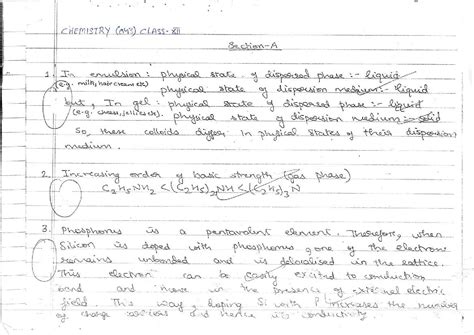 CHEMISTRY (043) CLASS-XII
Section-A
1. In emulsion: physical state of dispersed phase:- liquid
(e.g. milk, hair cream etc) physical state of dispersion medium:- liquid
but, In gel: physical state of dispersed phase:- liquid
(e.g. cheese, jellies etc). physical state of dispersion medium:- solid
So, these colloids differ in physical states of their dispersion
medium.
2. Increasing order of basic strength (gas phase)
C2H5NH2 < (C2H5)2NH < (C2H5)3N
3. Phosphorus is a pentavalent element. Therefore, when
Silicon is doped with phosphorus, one of the electrons
remains unbonded and is delocalised in the lattice.
This electron can be easily excited to conduction
band and move in the presence of external electric
field. This way, doping Si with P increases the number
of charge carriers and hence its conductivity.